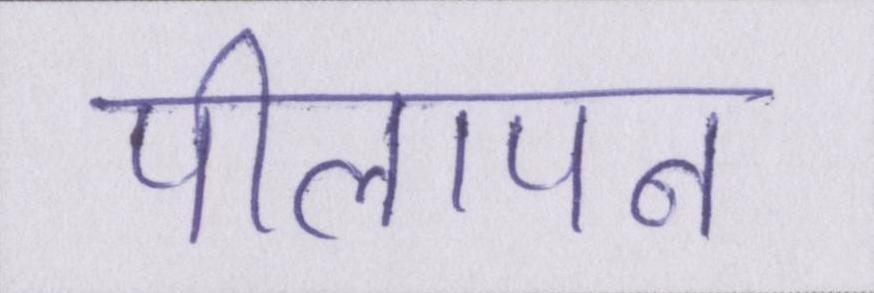 पीलापन